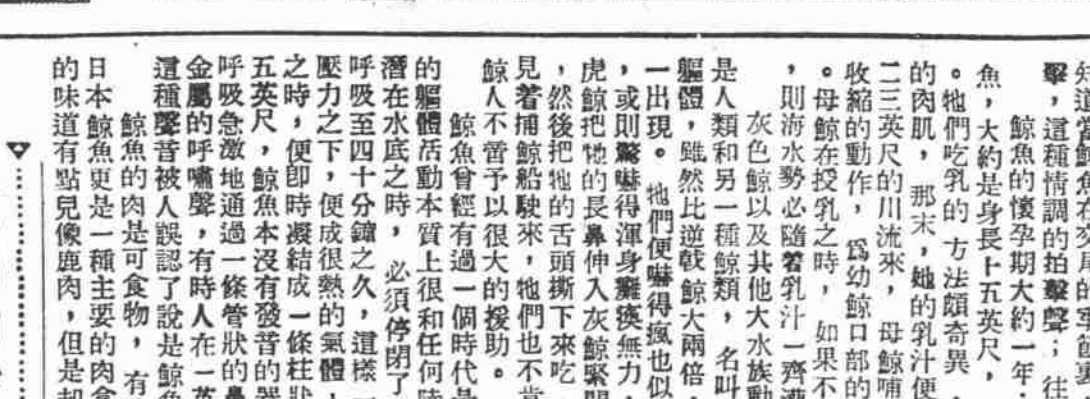 擊，這種情調的拍擊聲；往
鯨魚的懷孕期大約一年．
魚，大約是身長十五英尺，
。牠們吃乳的方法頗奇異．
的肉肌，那末，她的乳汁便
二三英尺的川流來，母鯨哺
收縮的動作，爲幼鯨口部的
。母鯨在授乳之時，如果不
，則海水勢必隨着乳汁一齊灌
灰色鯨以及其他大水族動
是人類和另一種鯨類，名叫
軀體，雖然比逆戟鯨大兩倍，
一出現。牠們便嚇得瘋也似
，或則驚嚇得渾身癱瘓無力，
虎鯨把牠的長鼻伸入灰鯨緊閉
，然後把牠的舌頭撕下來吃
見着捕鯨船駛來，牠們也不肯
鯨人不啻予以很大的援助。
鯨魚曾經有過一個時代是
的軀體活動本質上很和任何陸
潛在水底之時，必須停閉了
呼吸至四十分鐘之久，這樣一
壓力之下，便成很熱的氣體，
之時，便卽時凝結成一條柱狀
五英尺，鯨魚本沒有發音的器
呼吸急激地通過一條管狀的鼻
金屬的呼嘯聲，有時人在一英
這種聲音被人誤認了說是鯨魚
鯨魚的肉是可食物，有
日本鯨魚更是一種主要的肉食
的味道有點兒像鹿肉，但是却